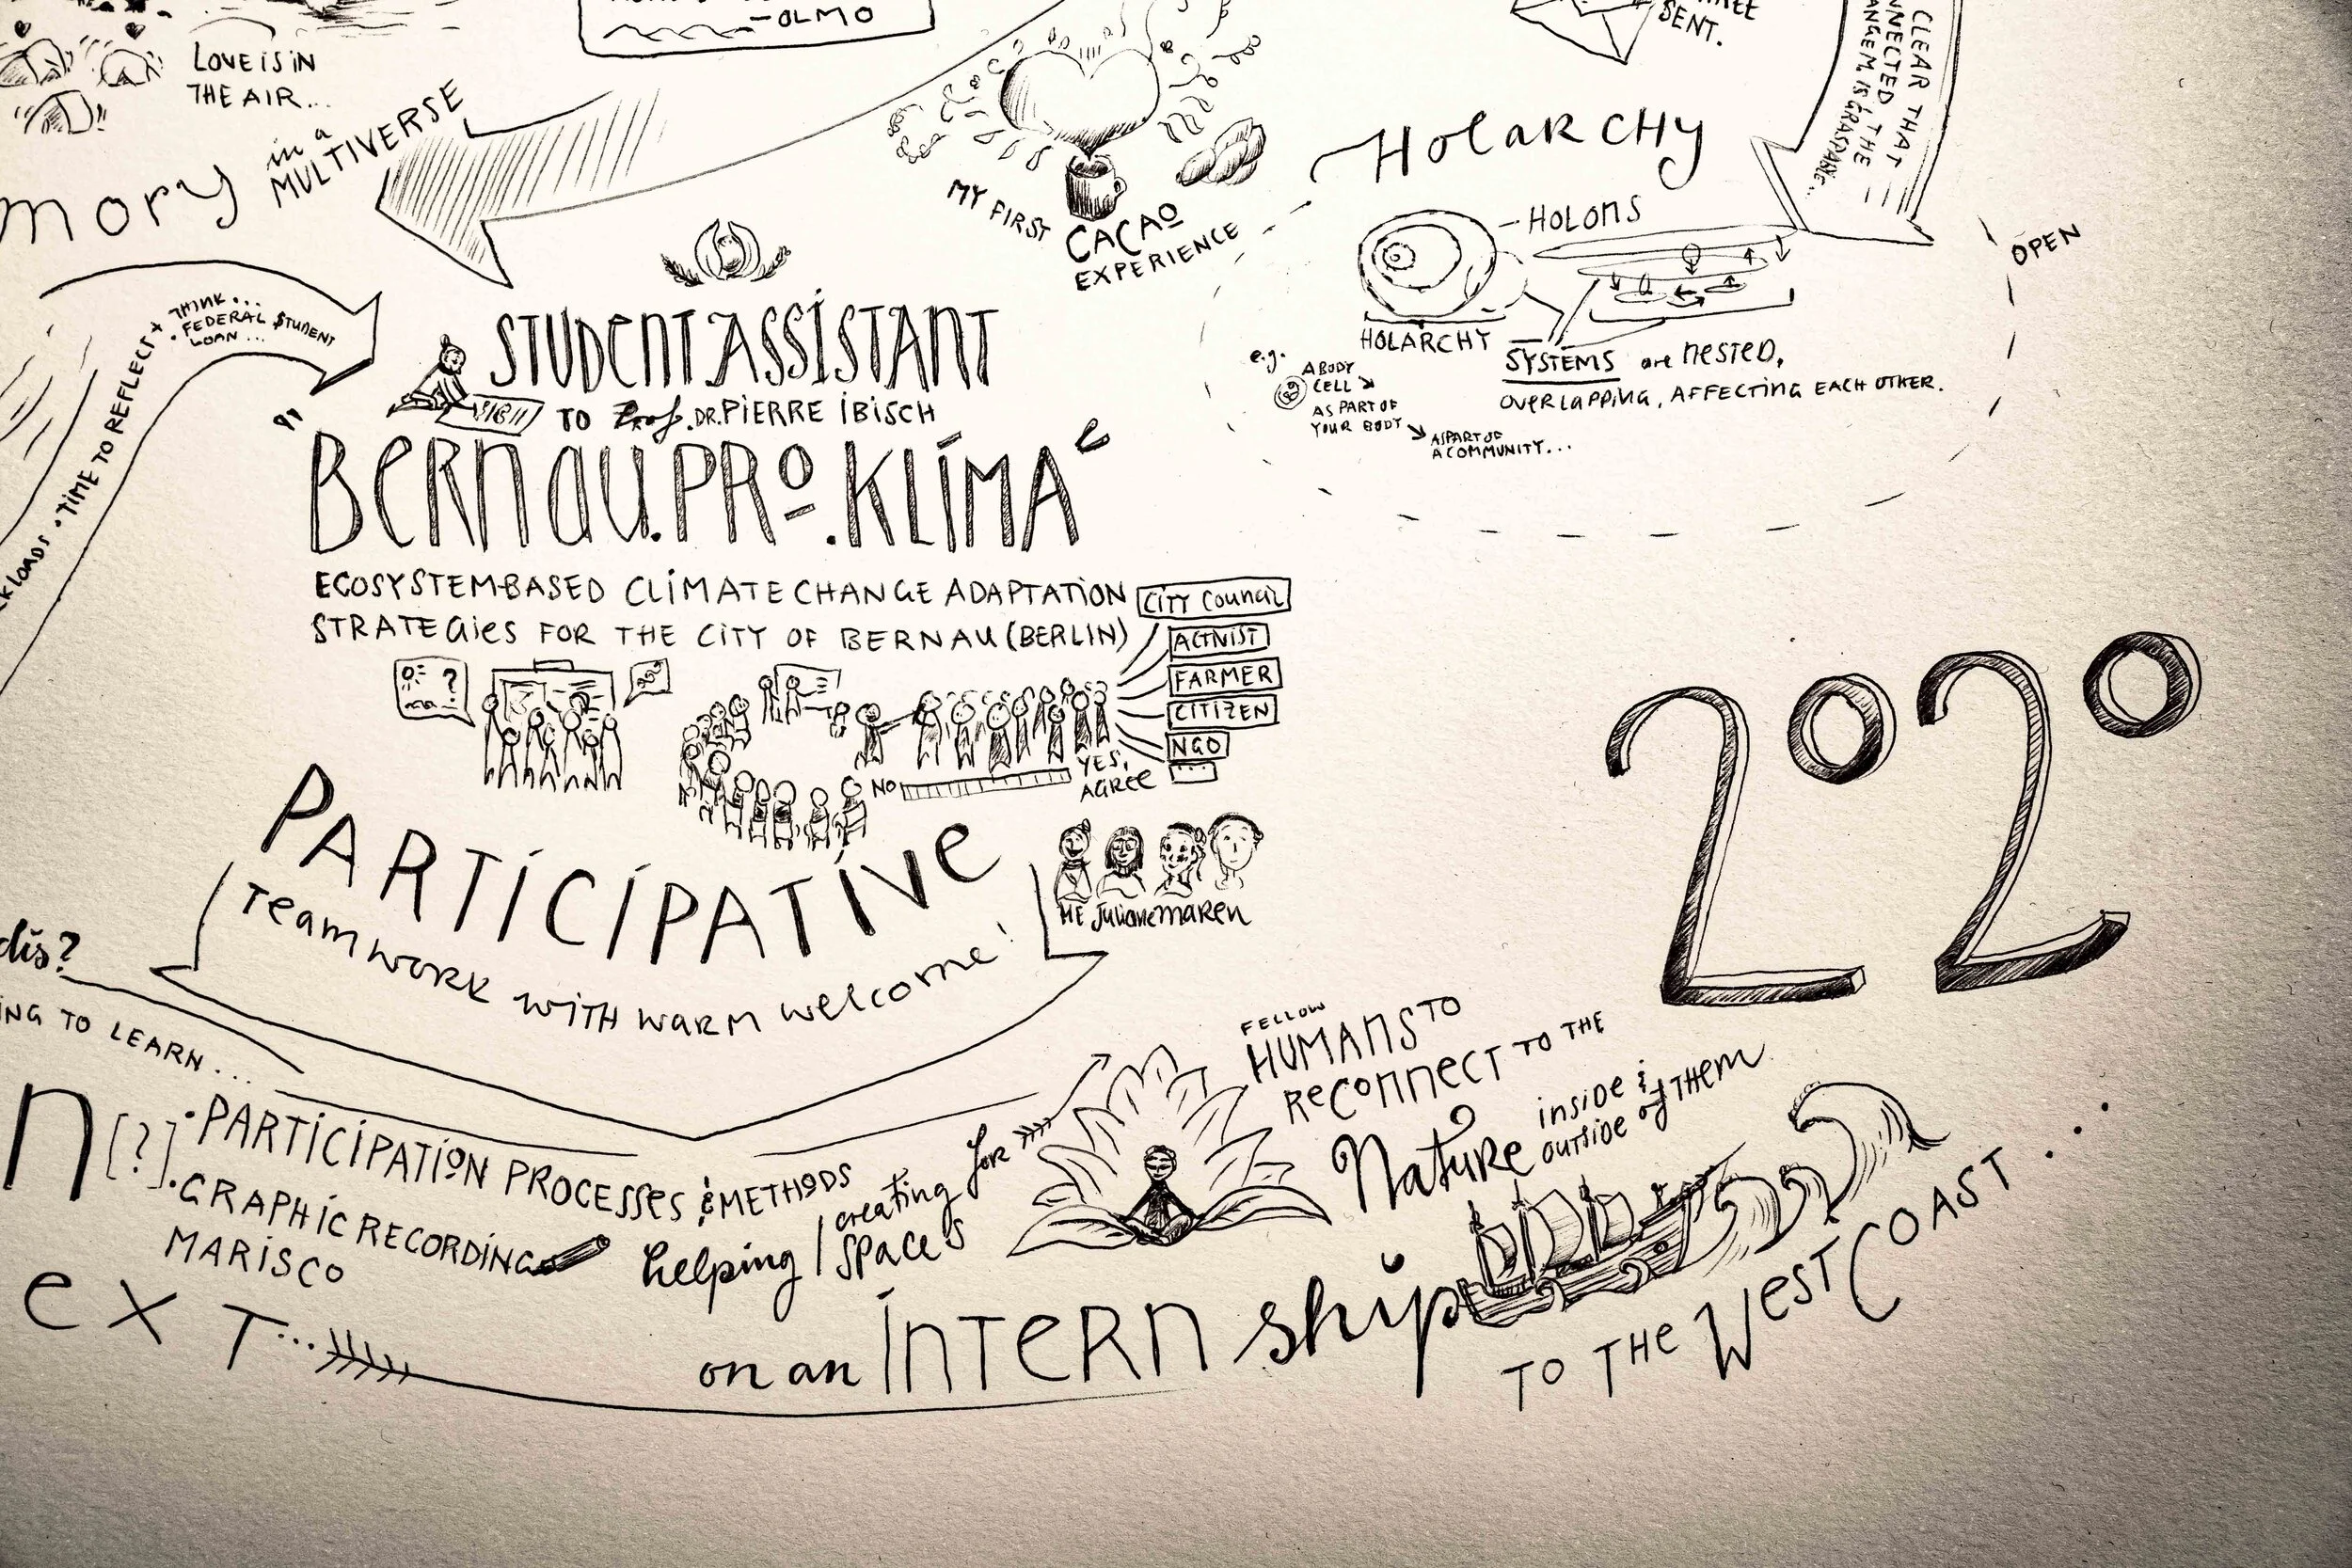 -OLMO
LOVE IS IN
THE AIR...
in a
MULTIVERSE
mory
SENT.
CLEAR THAT
NNECTED, THE
ANGEM. IS GRASPABLE..
MY FIRST
CACAO
EXPERIENCE
HOLARCHY
HOLONS
HOLARCHY
SYSTEMS are NESTED,
OVERLAPPING, AFFECTING EACH OTHER.
e.g.
A BODY
CELL
AS PART OF
YOUR BODY
AS PART OF
A COMMUNITY...
OPEN
KLOADS • TIME TO REFLECT + THINK...
• FEDERAL STUDENT
LOAN...
STUDENT ASSISTANT
TO Prof. DR. PIERRE IBISCH
"BERNAU.PRO.KLIMA"
ECOSYSTEM-BASED CLIMATE CHANGE ADAPTATION
STRATEGIES FOR THE CITY OF BERNAU (BERLIN)
CITY COUNCIL
ACTIVIST
FARMER
CITIZEN
NGO
...
?
NO
YES,
AGREE
PARTICIPATIVE
Teamwork with warm welcome!
ME Juliane maren
2020
dis?
ING TO LEARN...
n [?]
• PARTICIPATION PROCESSES & METHODS
• GRAPHIC RECORDING
MARISCO
helping / creating
spaces
for
FELLOW
HUMANS TO
RECONNECT TO THE
Nature inside &
outside of THEM
EXT...
on an INTERN ship
TO THE WEST COAST...